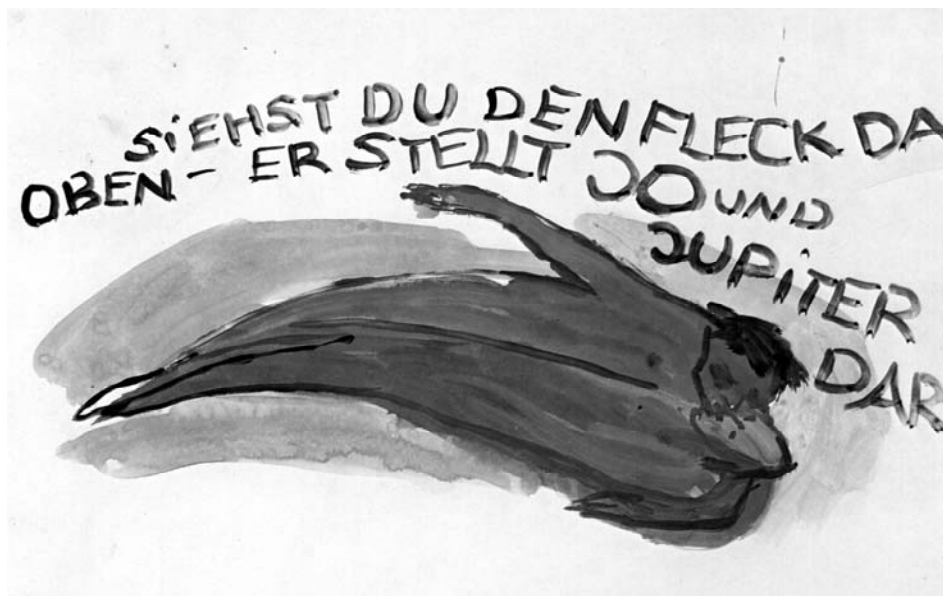 SiEHST DU DEN FLECK DA
OBEN - ER STELLT JO UND
JUPiTER
DAR